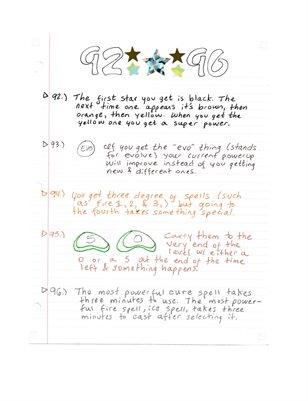 92 96
92.) The first star you get is black. The
next time one appears it's brown, then
orange, then yellow. When you get the
yellow one you get a super power.
93.) EVO If you get the "evo" thing (stands
for evolve) your current powerup
will improve instead of you getting
new & different ones.
94.) You get three degree of spells (such
as fire 1, 2, & 3,) but going to
the fourth takes something special.
95.) 5 0 Carry them to the
very end of the
level w/ either a
0 or a 5 at the end of the time
left & something happens.
96.) The most powerful cure spell takes
three minutes to use. The most power-
ful fire spell, ice spell, takes three
minutes to cast after selecting it.